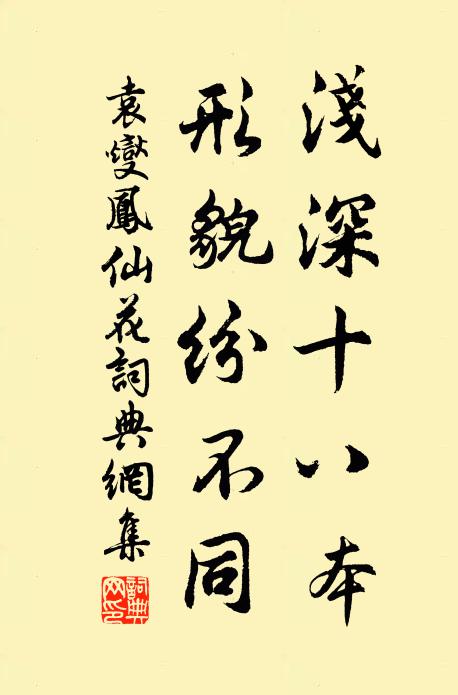 淺深十八本
形貌紛不同
袁燮鳳仙花詞典網集
詞典
网印